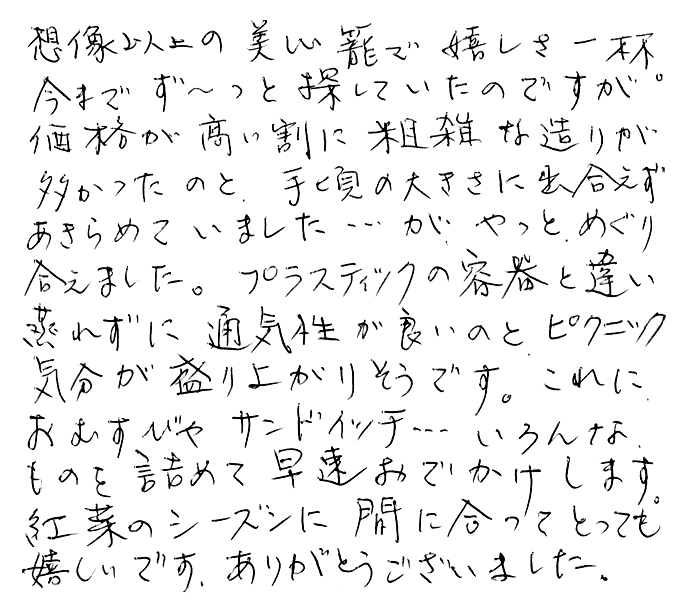 想像以上の美しい籠で嬉しさ一杯。
今まで ず〜っと探していたのですが
価格が高い割に粗雑な造りが
多かったのと、手頃の大きさに出合えず
あきらめていました…が、やっと、めぐり
合えました。プラスティックの容器と違い
蒸れずに通気性が良いのと、ピクニック
気分が盛り上がりそうです。これに
おむすびやサンドイッチ…いろんな
ものを詰めて早速おでかけします。
紅葉のシーズンに間に合ってとっても
嬉しいです、ありがとうございました。